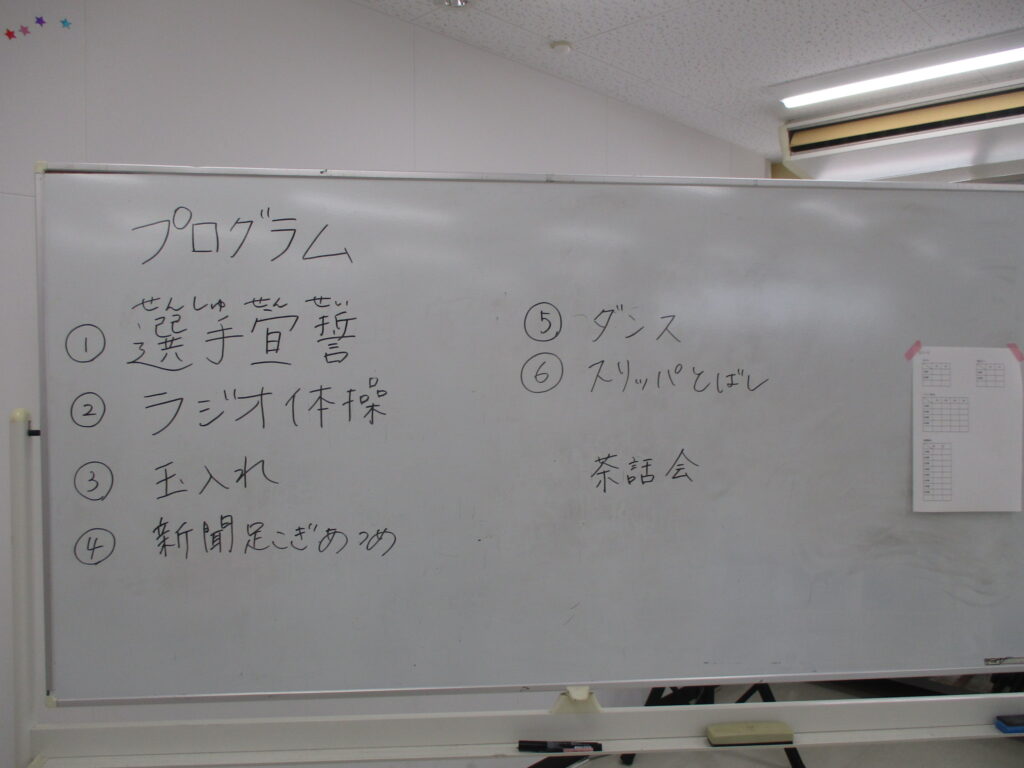 プログラム
せんしゅせんせい
① 選手宣誓
② ラジオ体操
③ 玉入れ
④ 新聞足こぎあつめ
⑤ ダンス
⑥ スリッパとばし
茶話会